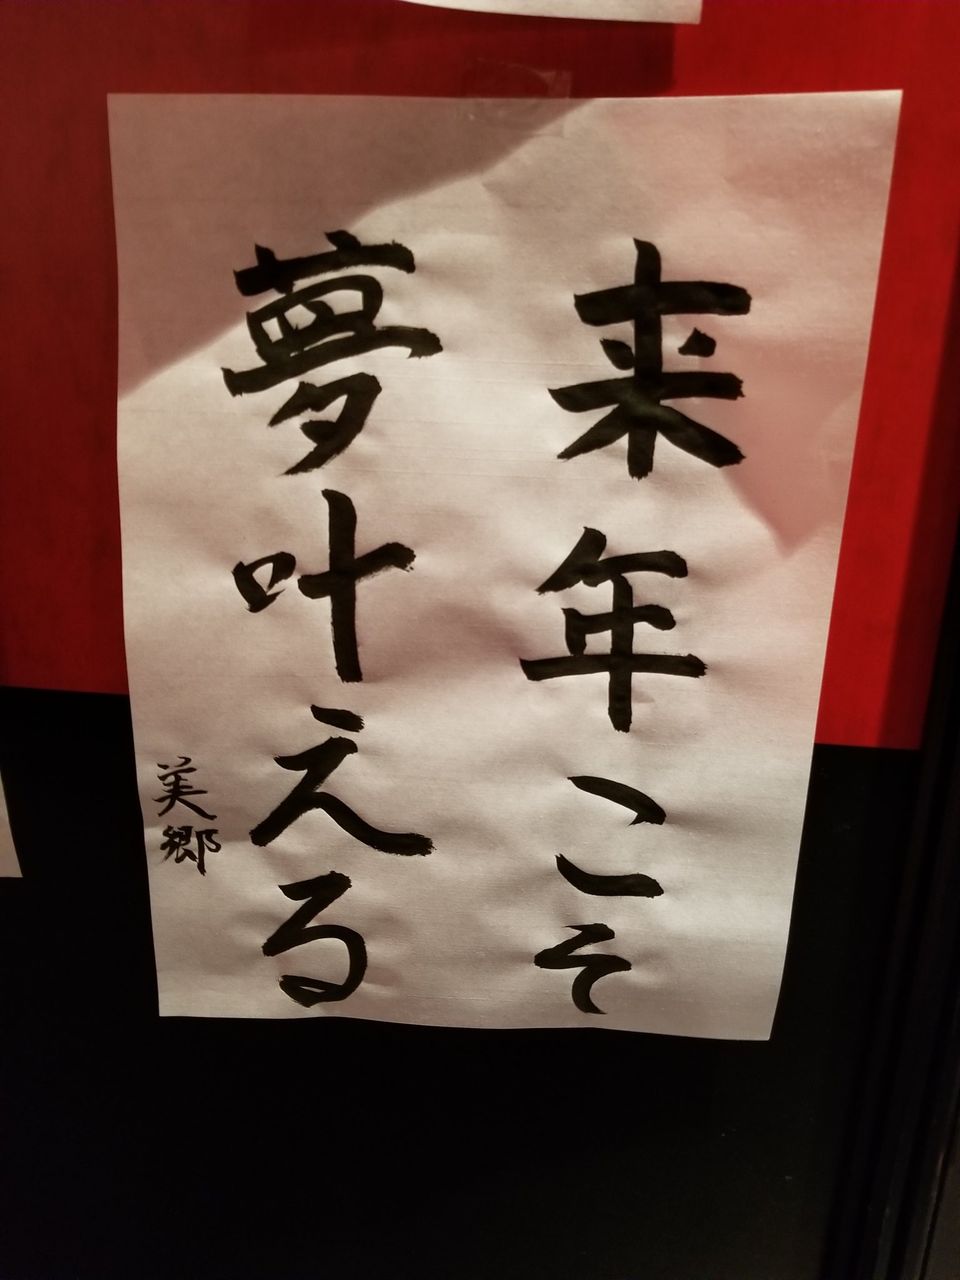 来年こそ
夢叶える
美郷